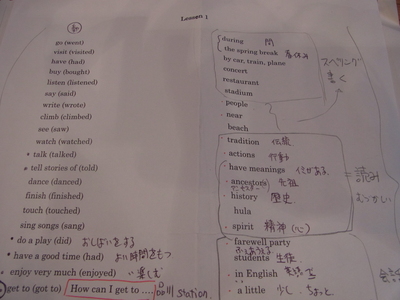 Lesson 1
動
go (went)
visit (visited)
have (had)
buy (bought)
listen (listened)
say (said)
write (wrote)
climb (climbed)
see (saw)
watch (watched)
• talk (talked)
• tell stories of (told)
dance (danced)
finish (finished)
touch (touched)
sing songs (sang)
• do a play (did) おしばいをする
• have a good time (had) よい時間をもつ
• enjoy very much (enjoyed) い楽しむ
get to (got to) How can I get to .... station.
during 間
the spring break 春休み
by car, train, plane
concert
restaurant
stadium
people
near
beach
スペリング
書く
tradition 伝統
actions 行動
have meanings 意味がある
ancestor(s) 先祖
history 歴史
hula
spirit 精神 (心)
= 読み
むつかしい
farewell party
students 生徒
in English 英語で
a little 少し ちょっと